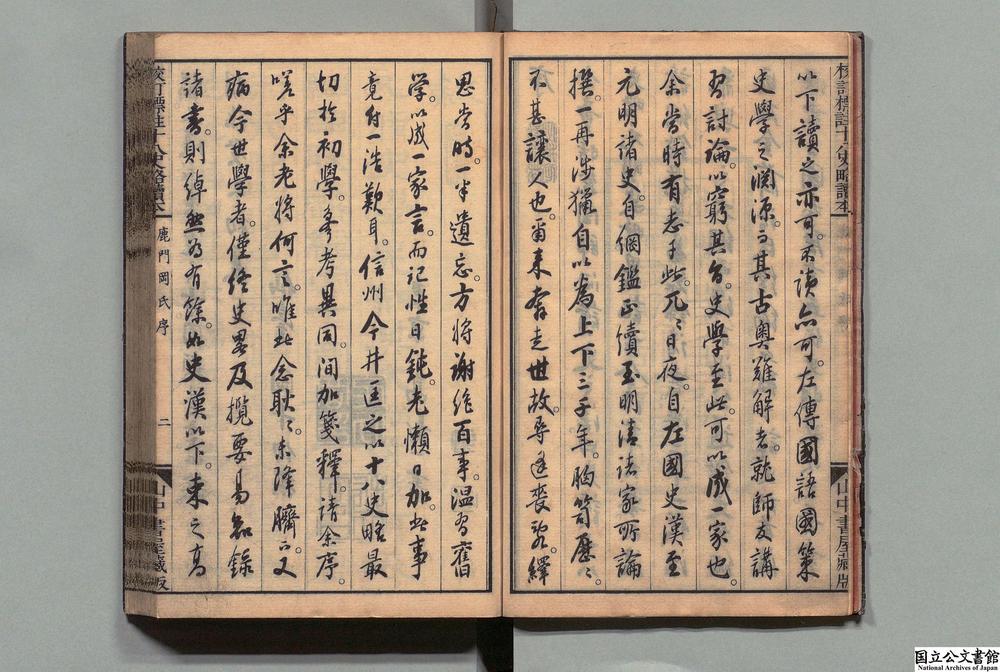 校訂標註十八史略讀本
山中書屋藏版
以下讀之亦可。不讀亦可。左傳國語國策
史學之淵源。而其古奧難解者。就師友講
習討論。以窮其旨。史學至此。可以成一家也。
余當時有志于此。兀々日夜。自左國史漢至
元明諸史。自綱鑑正續至明清諸家所論
撰。一再涉獵。自以爲上下三千年。胸笥歷々。
不甚讓人也。爾來奔走世故。尋逢喪亂。繹
思當時。一半遺忘。方將謝絶百事。溫習舊
学。以成一家言。而記性日鈍。老懶日加。此事
竟付一浩歎耳。信州今井匡之以十八史略最
切於初學。參考異同。間加箋釋。請余序。
嗟乎余老將何言。唯此念耿々。未降臍。而又
病今世學者。僅終史畧及攬要易知録
諸書。則綽然爲有餘。如史漢以下。束之高
校訂標註十八史略讀本
鹿門岡氏序
二
山中書屋藏版
国立公文書館
National Archives of Japan